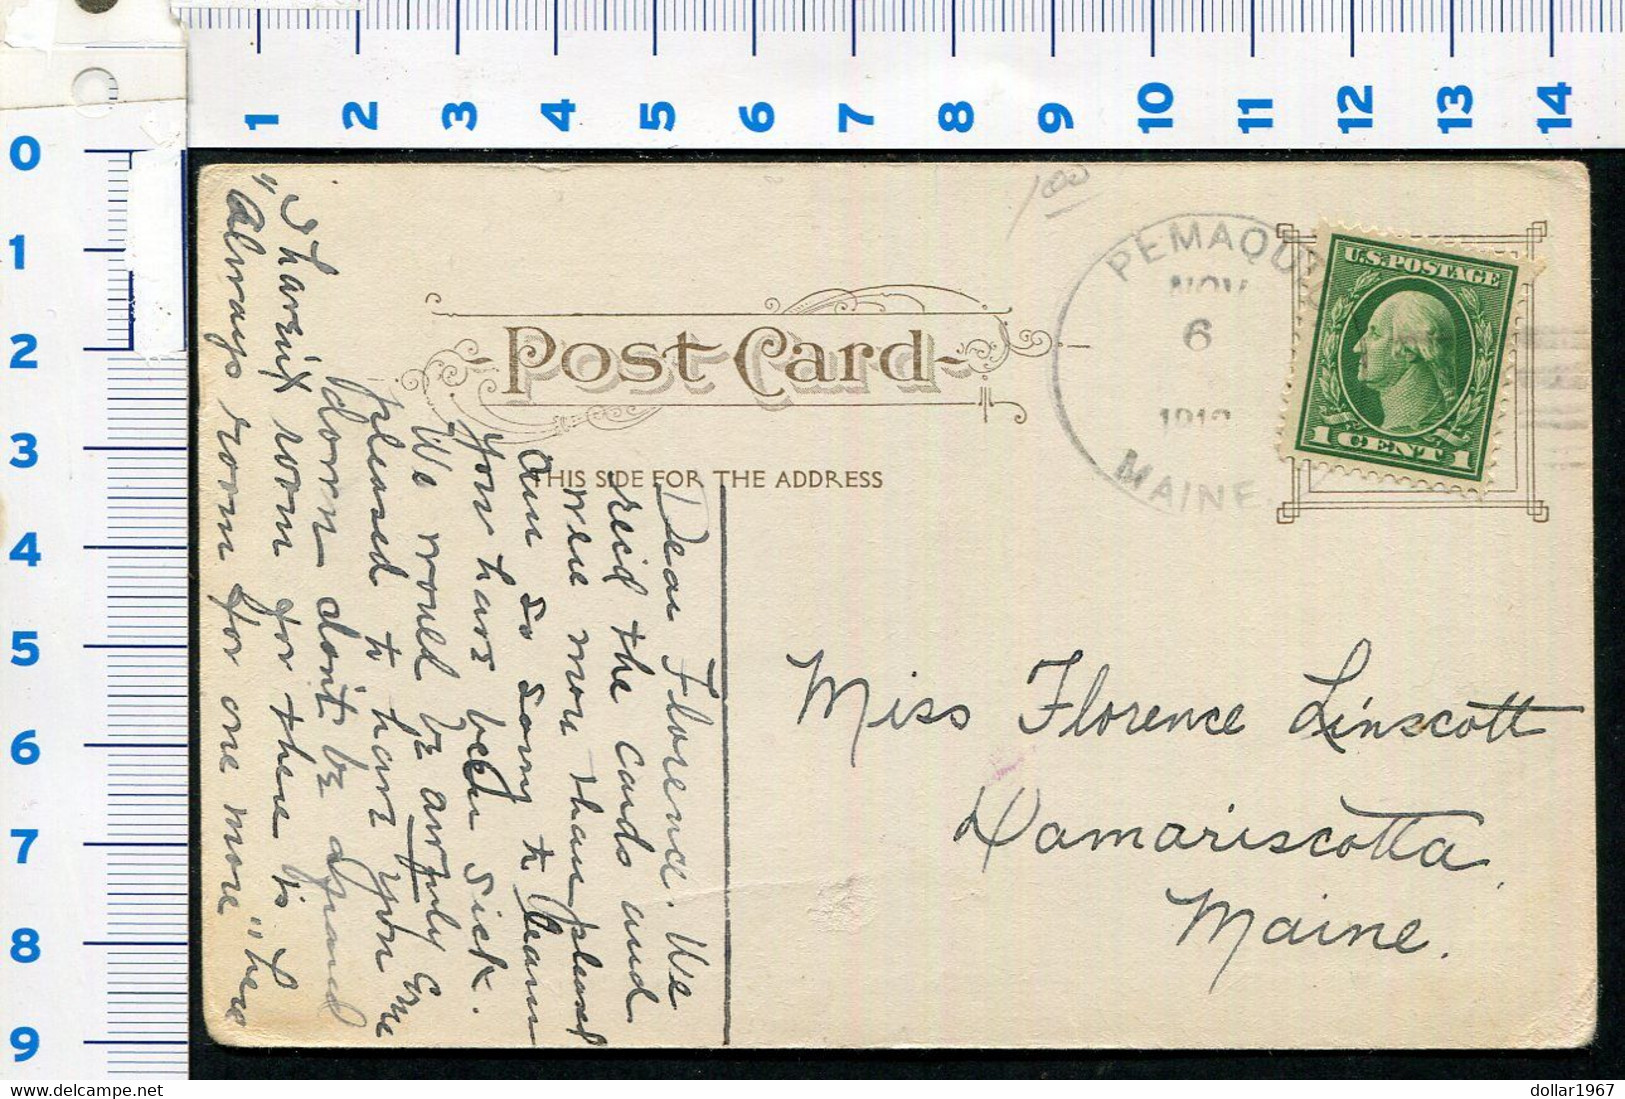 1 2 3 4 5 6 7 8 9 10 11 12 13 14
0
1
2
3
4
5
6
7
8
9
1 00
PEMAQUI
NOV
6
MAINE.
U.S. POSTAGE
1 CENT 1
Post Card
THIS SIDE FOR THE ADDRESS
Dear Florence. We
rec'd the cards and
were more than pleased
am so sorry to learn
you have been sick.
We would be awfuly
pleased to have you come
down don't be afraid
I haven't room for there is
"Always room for one more" here
Miss Florence Linscott
Damariscotta
Maine.
dollar1967